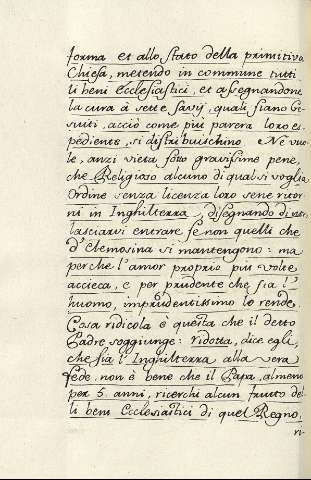 forma et allo stato della primitiva
Chiesa, metendo in commune tutti
li beni Ecclesiastici, et assegnandone
la cura à sette savij, quali siano Ge-
suiti, acciò come più parera loro es-
pediente, si distribuischino. Ne vuo-
le, anzi vieta sotto gravissime pene,
che Religioso alcuno di qual si voglia
Ordine senza licenza loro sene ritor-
ni in Inghilterra, disegnando di non
lasciarvi entrare se non quelli che
d'Elemosina si mantengono: ma
perche l'amor proprio più volte
accieca, e per prudente che sia l'
huomo, imprudentissimo lo rende.
Cosa ridicola è questa che il detto
Padre soggiunge: ridotta, dice egli,
che sia l'Inghilterra alla vera
fede non è bene che il Papa, almeno
per 5. anni, ricerchi alcun frutto de-
li beni Ecclesiastici di quel Regno,
ri-